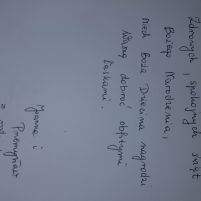 Zdrowych, spokojnych świąt
Bożego Narodzenia,
niech Boża Dziecina nagrodzi
Waszą dobroć obfitymi
łaskami.
Iwona i
Przemysław
z